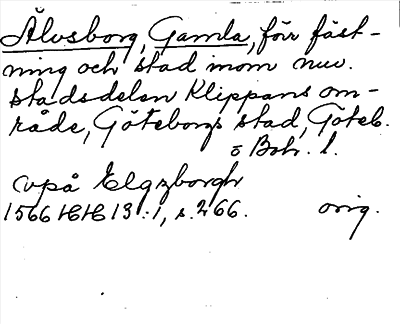 Älvsborg, Gamla, förr fäst-
ning och stad inom nuv.
stadsdelen Klippans om-
råde, Göteborgs stad, Göteb.
o Boh. l.
vpå Elgzborgh
1566 HH 13:1, s. 266. orig.